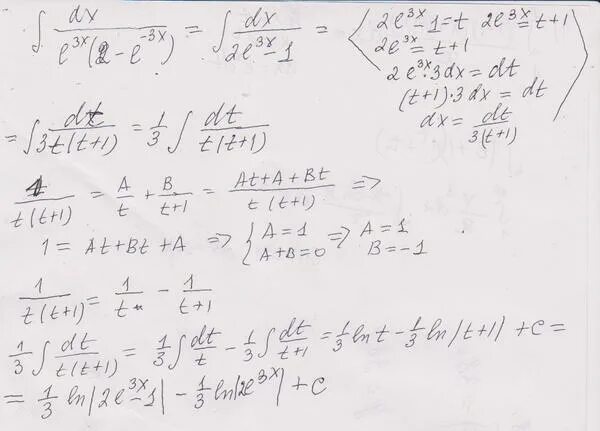 ∫ dx / (e^{3x}(2 - e^{-3x})) = ∫ dx / (2e^{3x} - 1) = ⟨ 2e^{3x} - 1 = t   2e^{3x} = t+1
2e^{3x} = t+1
2e^{3x}·3dx = dt
(t+1)·3dx = dt
dx = dt / (3(t+1)) ⟩
= ∫ dt / (3t(t+1)) = 1/3 ∫ dt / (t(t+1))
1 / (t(t+1)) = A/t + B/(t+1) = (At+A+Bt) / (t(t+1)) =>
1 = At+Bt+A => { A=1, A+B=0 => A=1, B=-1
1 / (t(t+1)) = 1/t - 1/(t+1)
1/3 ∫ dt / (t(t+1)) = 1/3 ∫ dt/t - 1/3 ∫ dt/(t+1) = 1/3 ln t - 1/3 ln|t+1| + C =
= 1/3 ln|2e^{3x} - 1| - 1/3 ln|2e^{3x}| + C